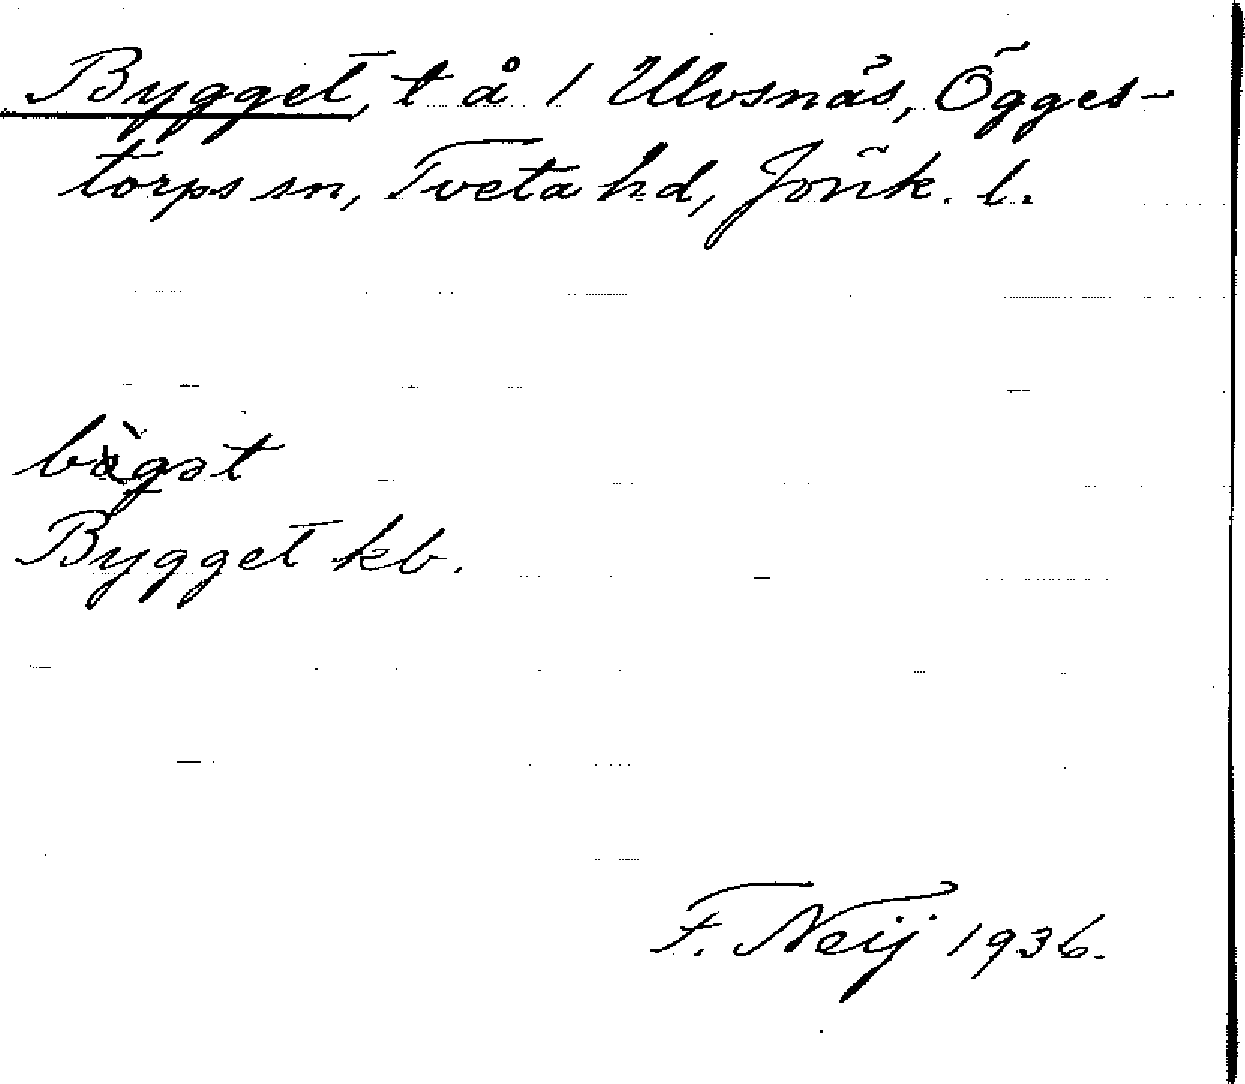 Bygget, t å 1 Ulvsnäs, Ögges-
torps sn, Tveta hd, Jönk. l.
Bygget kb.
F. Neij 1936.